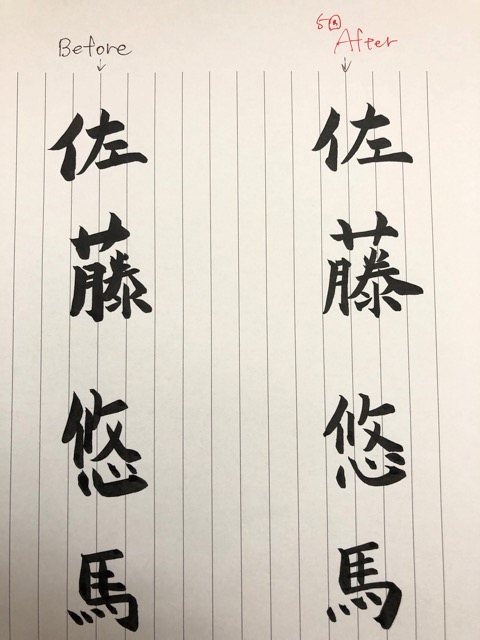 Before
After
佐藤悠馬
佐藤悠馬